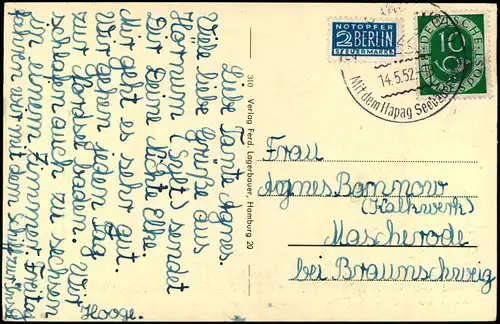 Liebe Tante Agnes.
Viele liebe Grüße aus
Hörnum (Sylt) sendet
Dir Deine Nichte Elke.
Mir geht es sehr gut.
Wir gehen jeden Tag
zur Nordsee baden. Wir
schlafen auch zu sechsen
in einem Zimmer. Freitag
fahren wir mit dem Schiff zur Insel
Hooge.
310 Verlag Ferd. Lagerbauer, Hamburg 20
NOTOPFER
2 BERLIN
STEUERMARKE
DEUTSCHE
BUNDESPOST
10
14.5.52
Mit dem Hapag Seebäder
Frau
Agnes Bannow
(Kalkwerk)
Mascherode
bei Braunschweig